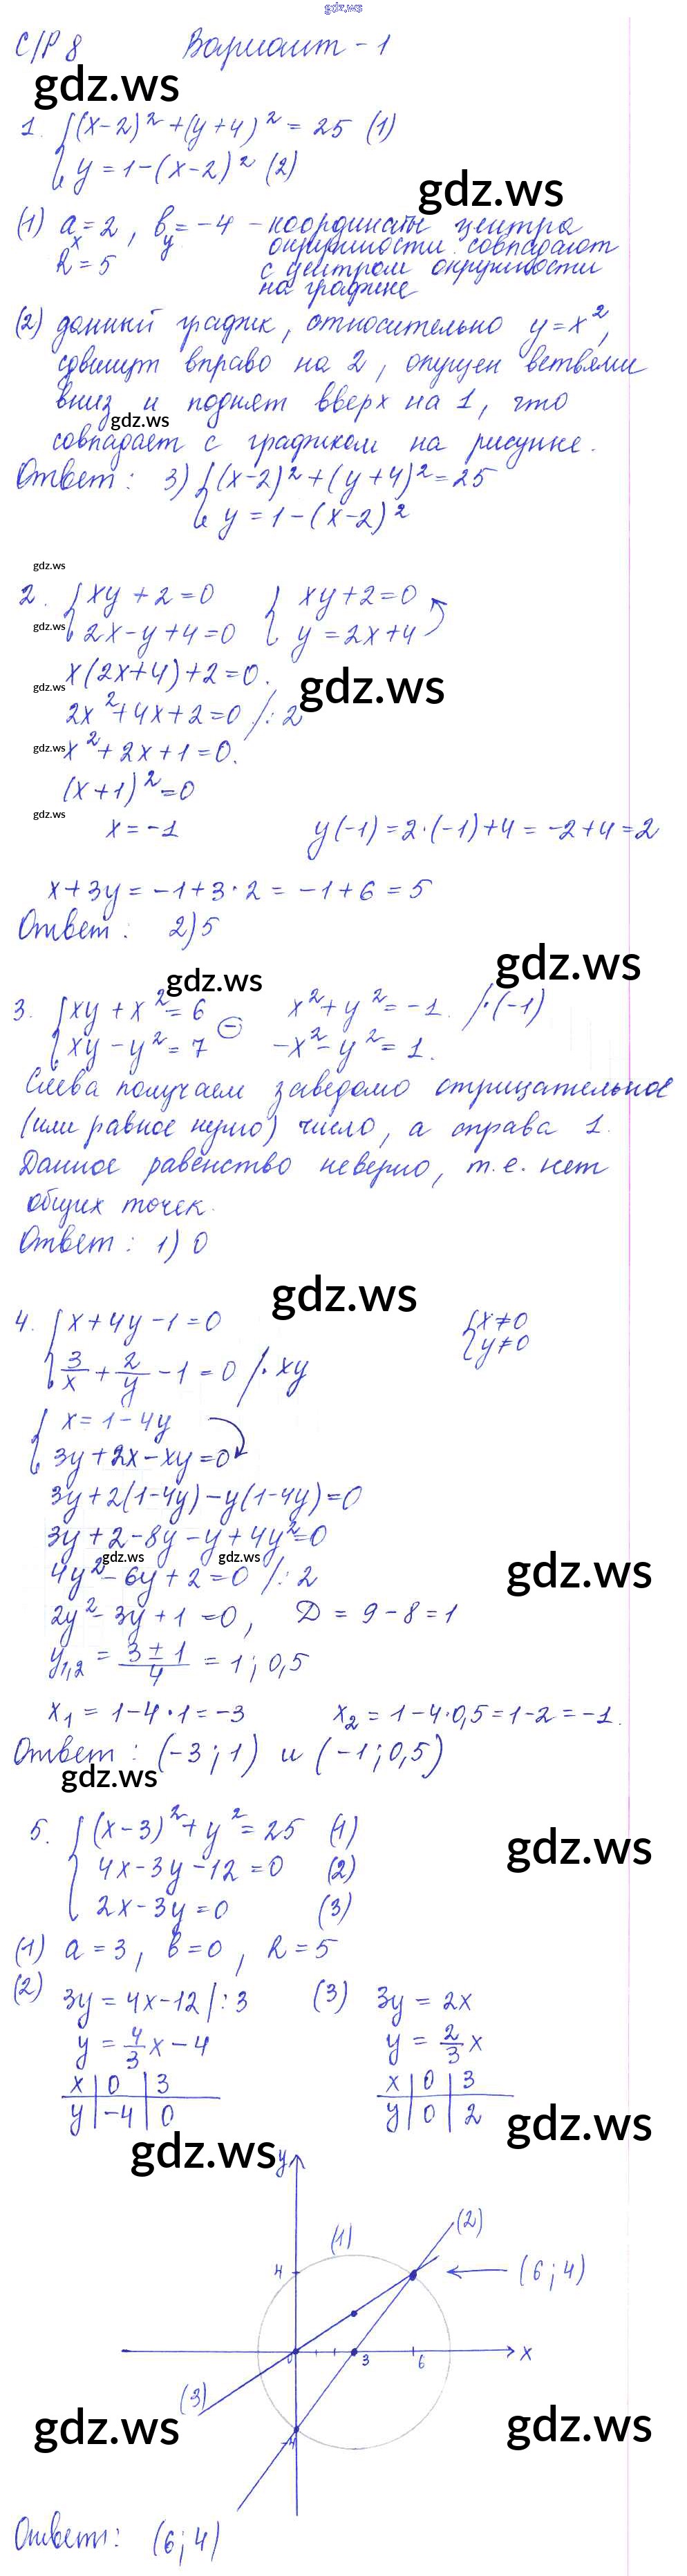 gdz.ws
С/Р 8 Вариант - 1
gdz.ws
1. {(x-2)² + (y+4)² = 25 (1)
y = 1-(x-2)² (2)
gdz.ws
(1) aₓ = 2, b_y = -4 - координаты центра
R = 5 окружности совпадают
с центром окружности
на графике
(2) данный график, относительно y = x²,
сдвинут вправо на 2, опущен ветвями
вниз и поднят вверх на 1, что
gdz.ws
совпадает с графиком на рисунке.
Ответ: 3) {(x-2)² + (y+4)² = 25
y = 1-(x-2)²
gdz.ws
2. {xy + 2 = 0 {xy + 2 = 0
gdz.ws
2x - y + 4 = 0 y = 2x + 4
x(2x+4) + 2 = 0.
gdz.ws
gdz.ws
2x² + 4x + 2 = 0 /: 2
gdz.ws
x² + 2x + 1 = 0.
(x+1)² = 0
gdz.ws
x = -1 y(-1) = 2·(-1)+4 = -2+4 = 2
x + 3y = -1 + 3·2 = -1 + 6 = 5
Ответ: 2) 5
gdz.ws
gdz.ws
3. {xy + x² = 6 ⊖ x² + y² = -1. /·(-1)
xy - y² = 7 -x² - y² = 1.
Слева получаем заведомо отрицательное
(или равное нулю) число, а справа 1.
Данное равенство неверно, т.е. нет
общих точек.
Ответ: 1) 0
gdz.ws
4. {x + 4y - 1 = 0 {x ≠ 0
3/x + 2/y - 1 = 0 /· xy y ≠ 0
{x = 1 - 4y
3y + 2x - xy = 0
3y + 2(1-4y) - y(1-4y) = 0
3y + 2 - 8y - y + 4y² = 0
gdz.ws gdz.ws gdz.ws
4y² - 6y + 2 = 0 /: 2
2y² - 3y + 1 = 0, D = 9 - 8 = 1
y₁,₂ = (3 ± 1)/4 = 1; 0,5
x₁ = 1 - 4·1 = -3 x₂ = 1 - 4·0,5 = 1 - 2 = -1.
Ответ: (-3; 1) и (-1; 0,5)
gdz.ws
5. {(x-3)² + y² = 25 (1)
gdz.ws
4x - 3y - 12 = 0 (2)
2x - 3y = 0 (3)
(1) a = 3, b = 0, R = 5
(2) 3y = 4x - 12 /: 3 (3) 3y = 2x
y = 4/3 x - 4 y = 2/3 x
x | 0 | 3 x | 0 | 3
y | -4 | 0 y | 0 | 2
gdz.ws
gdz.ws
y
(1) (2)
4 (6; 4)
0 3 6 x
(3)
gdz.ws gdz.ws
-4
Ответ: (6; 4)